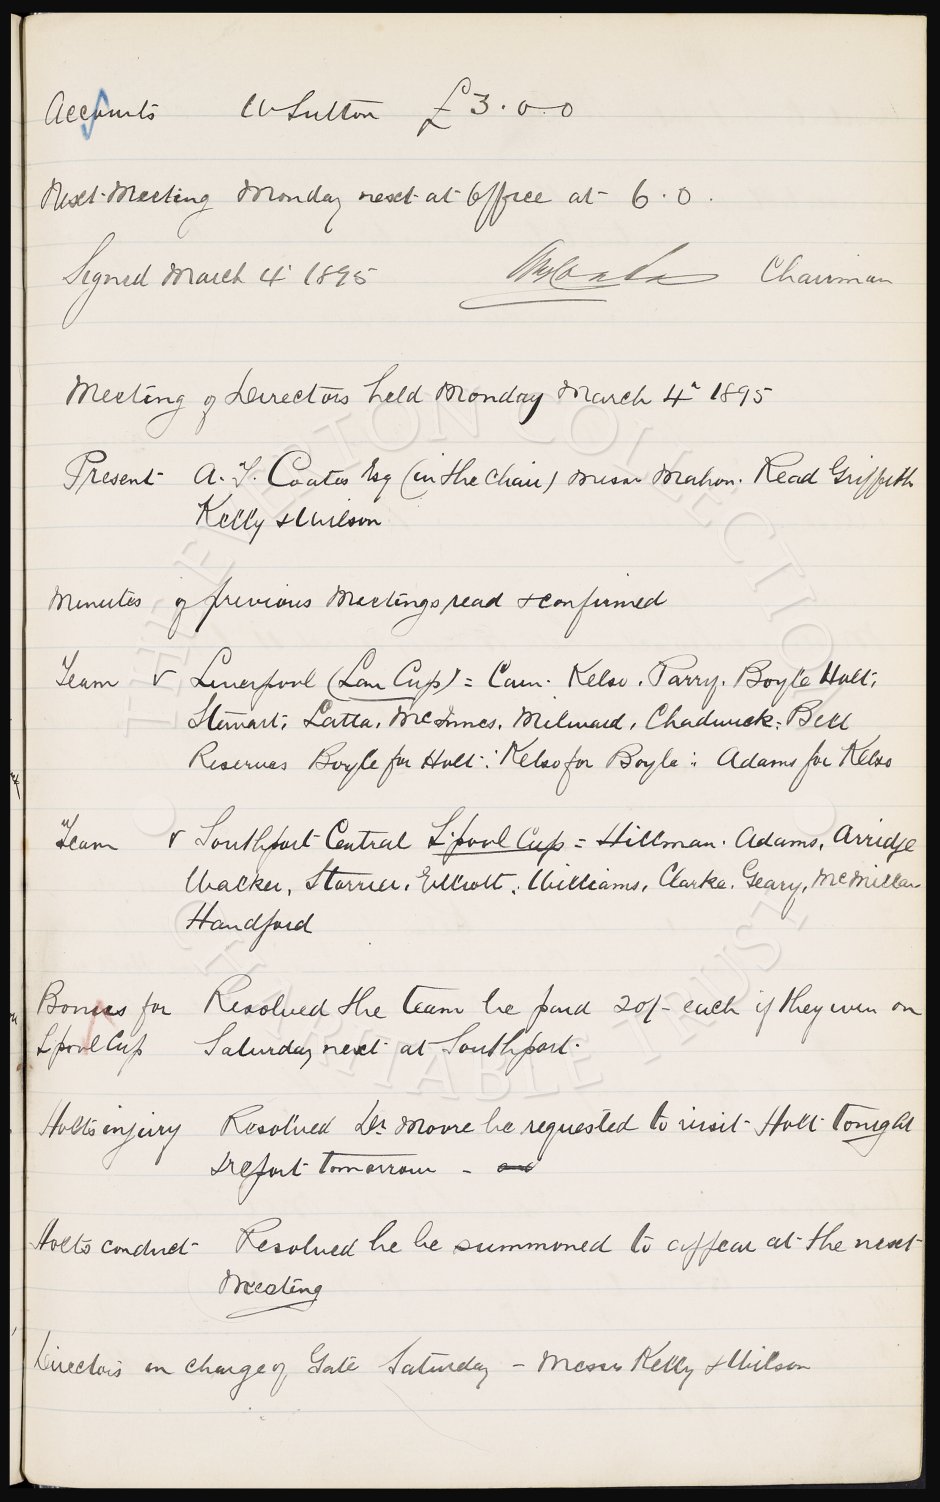 Accounts W Sutton £3.0.0
Next Meeting Monday next at Office at 6.0.
Signed March 4 1895 Chairman
Meeting of Directors held Monday March 4th 1895
Present A. T. Coates Esq (in the chair) Messrs Mahon. Read Griffith
Kelly & Wilson
Minutes of previous Meetings read & confirmed
Team v Liverpool (Lan Cup) = Cain. Kelso. Parry. Boyle Holt,
Stewart, Latta, McInnes, Milward, Chadwick, Bell
Reserves Boyle for Holt: Kelso for Boyle: Adams for Kelso
Team v Southport Central L'pool Cup = Hillman. Adams, Arridge
Walker, Storrier, Elliott, Williams, Clarke. Geary, McMillan
Handford
Bonus for Resolved the team be paid 20/- each if they win on
L'pool Cup Saturday next at Southport.
Holts injury Resolved Dr Moore be requested to visit Holt tonight
& report tomorrow - and
Holts conduct Resolved he be summoned to appear at the next
Meeting
Directors in charge of Gate Saturday - Messrs Kelly & Wilson
THE EVERTON COLLECTION
CHARITABLE TRUST